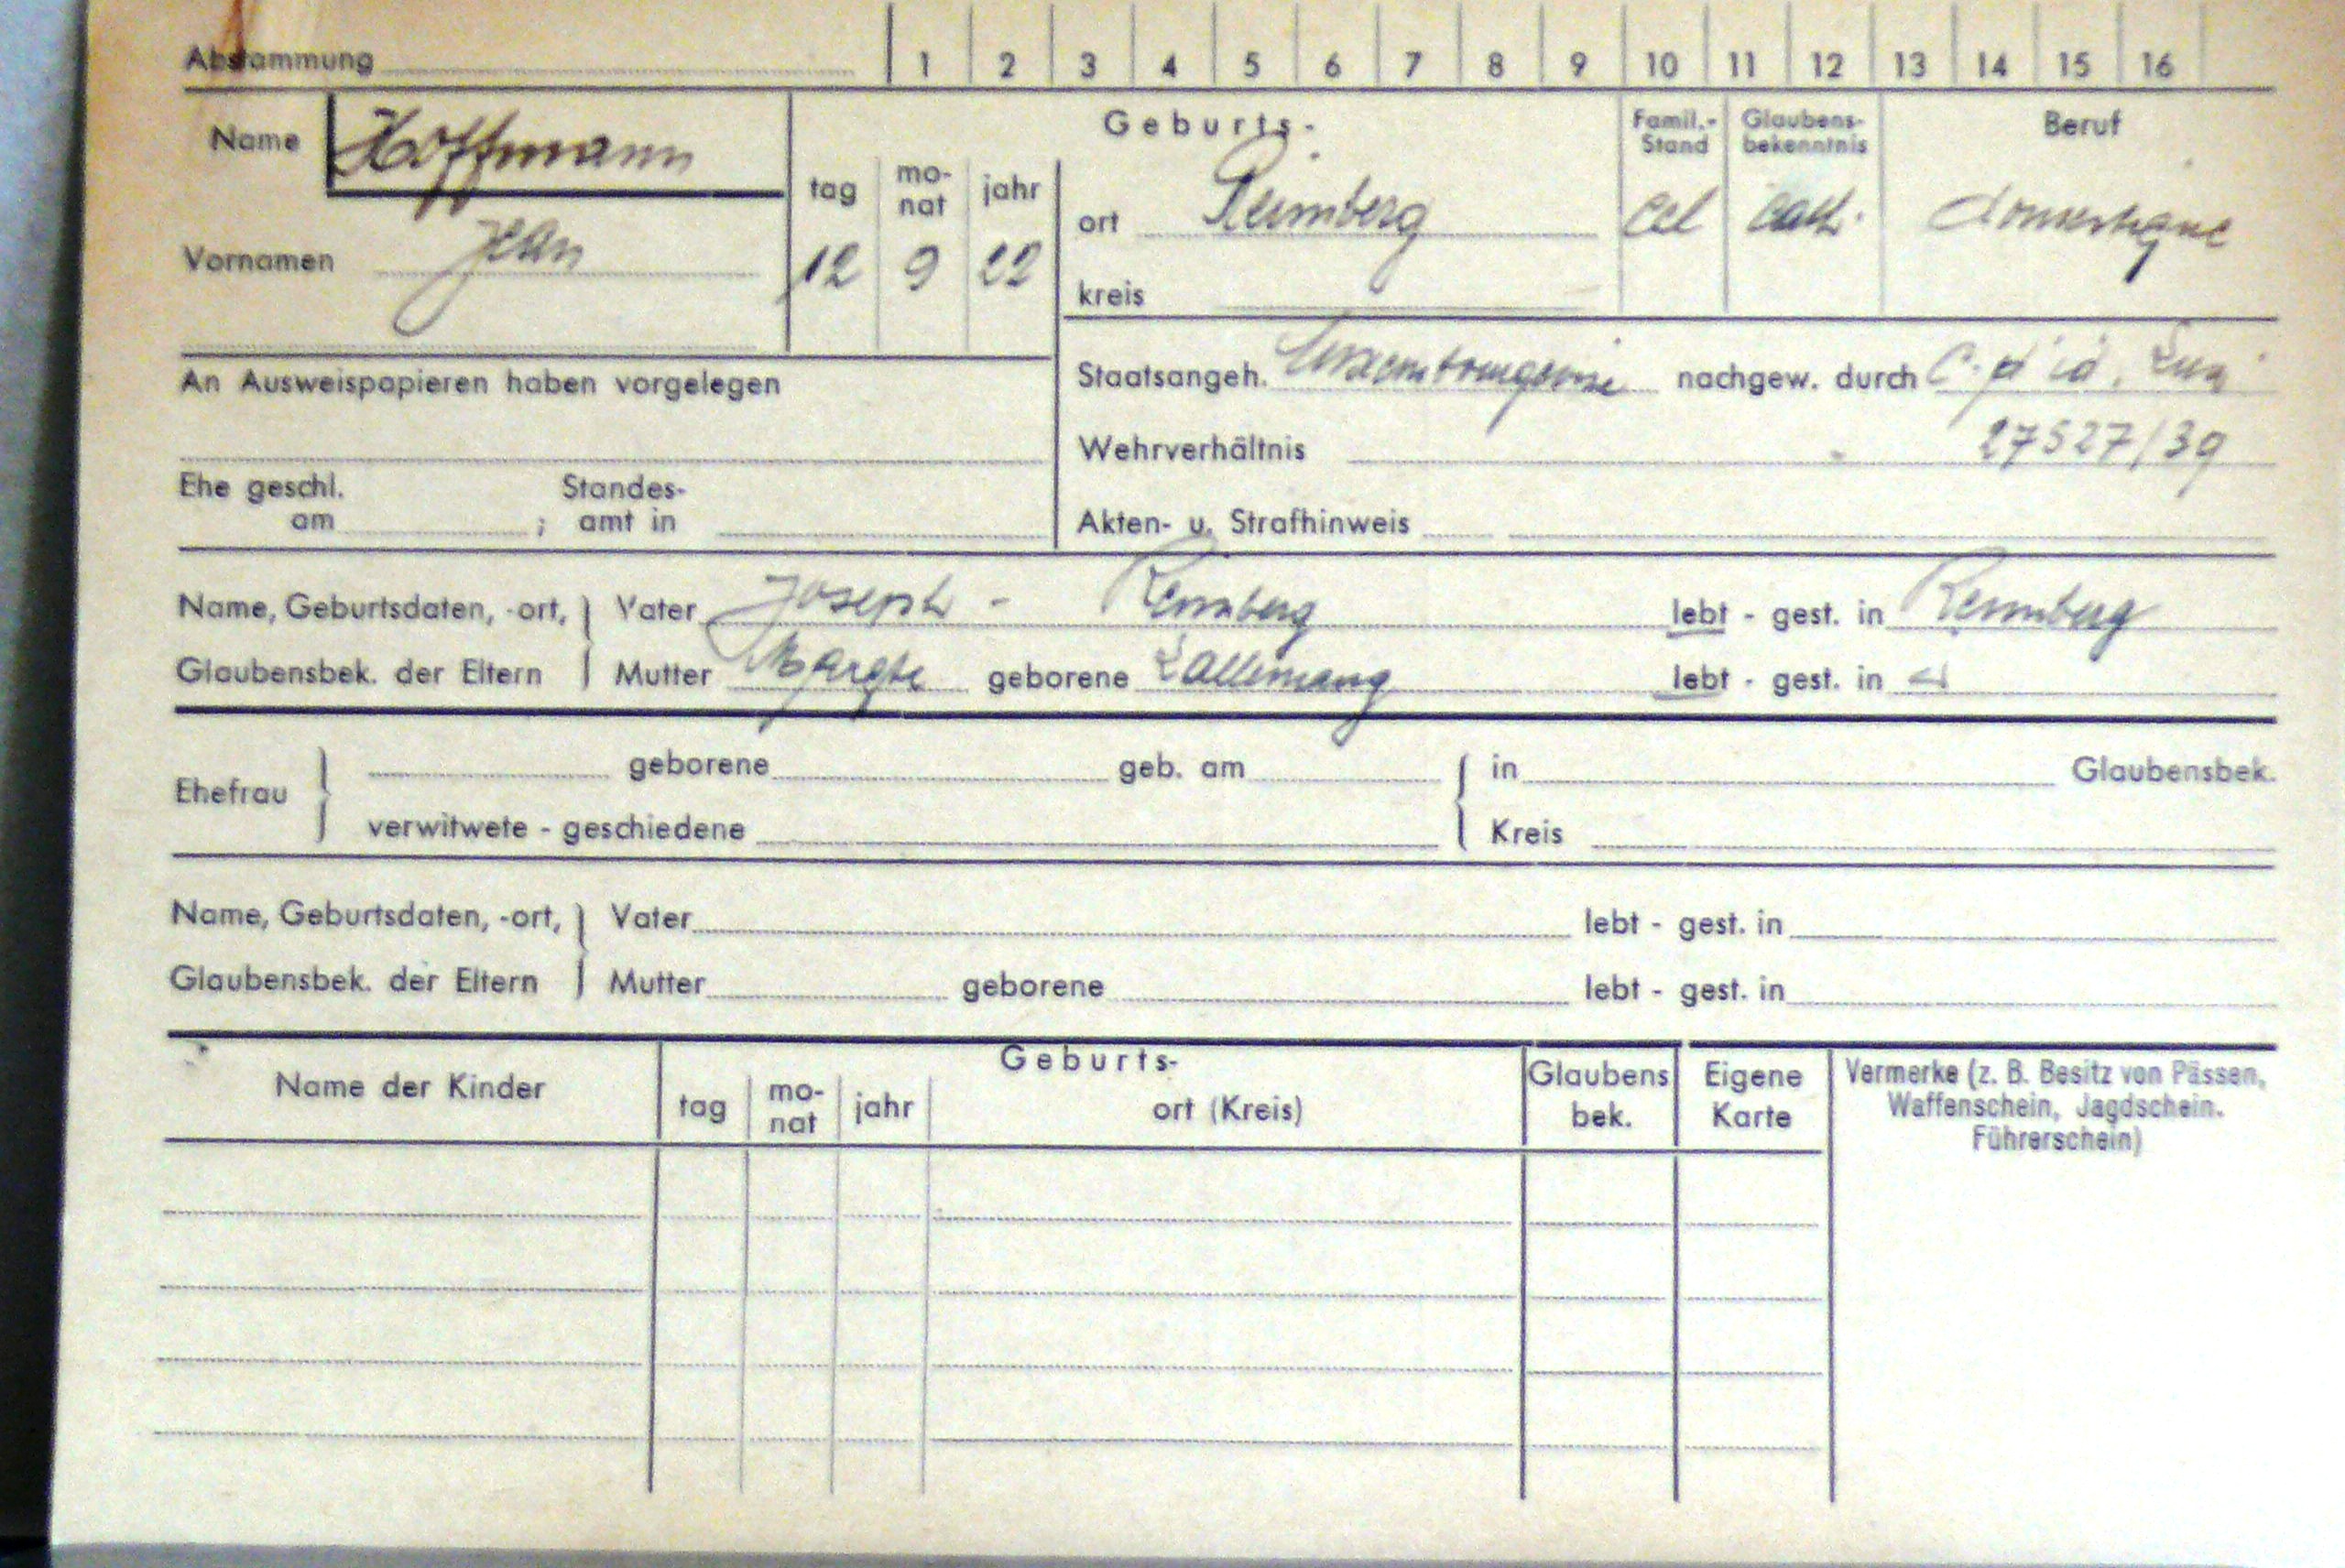 Abstammung 1 2 3 4 5 6 7 8 9 10 11 12 13 14 15 16
Name Hoffmann
Vornamen Jean
Geburts-
tag mo-nat jahr
12 9 22
ort Reimberg
kreis
Famil.-Stand
cel
Glaubens-bekenntnis
cath.
Beruf
domestique
An Ausweispapieren haben vorgelegen
Staatsangeh. luxembourgeoise nachgew. durch C. d' id. Lux
Wehrverhältnis 27527/39
Ehe geschl. am ; Standes-amt in
Akten- u. Strafhinweis
Name, Geburtsdaten, -ort, Vater Joseph - Reimberg lebt - gest. in Reimberg
Glaubensbek. der Eltern Mutter Margte geborene Lallemang lebt - gest. in
Ehefrau geborene geb. am in Glaubensbek.
verwitwete - geschiedene Kreis
Name, Geburtsdaten, -ort, Vater lebt - gest. in
Glaubensbek. der Eltern Mutter geborene lebt - gest. in
Name der Kinder
Geburts-
tag mo-nat jahr ort (Kreis)
Glaubens bek.
Eigene Karte
Vermerke (z. B. Besitz von Pässen,
Waffenschein, Jagdschein.
Führerschein)